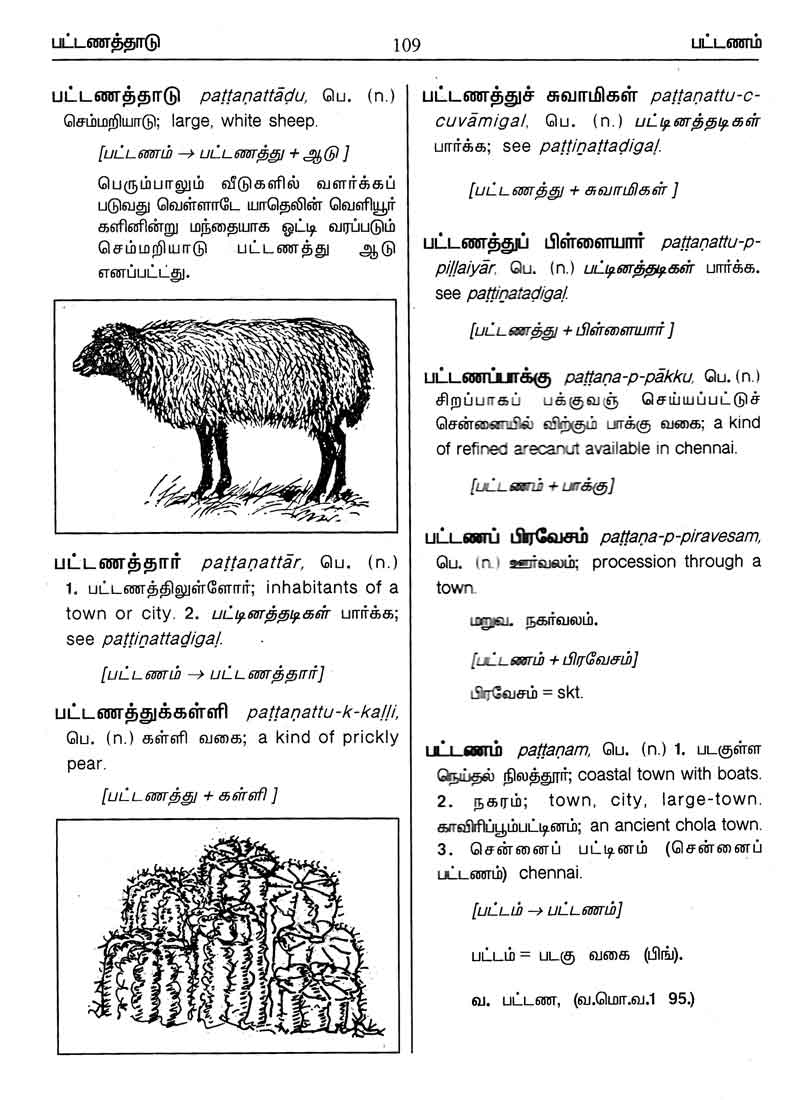 பட்டணத்தாடு 109 பட்டணம்
பட்டணத்தாடு paṭṭaṇattāḍu, பெ. (n.)
செம்மறியாடு; large, white sheep.
[பட்டணம் → பட்டணத்து + ஆடு ]
பெரும்பாலும் வீடுகளில் வளர்க்கப்
படுவது வெள்ளாடே யாதெலின் வெளியூர்
களினின்று மந்தையாக ஓட்டி வரப்படும்
செம்மறியாடு பட்டணத்து ஆடு
எனப்பட்டது.
பட்டணத்தார் paṭṭaṇattār, பெ. (n.)
1. பட்டணத்திலுள்ளோர்; inhabitants of a
town or city. 2. பட்டினத்தடிகள் பார்க்க;
see paṭṭiṉattaḍigaḷ.
[பட்டணம் → பட்டணத்தார்]
பட்டணத்துக்கள்ளி paṭṭaṇattu-k-kaḷḷi,
பெ. (n.) கள்ளி வகை; a kind of prickly
pear.
[பட்டணத்து + கள்ளி ]
பட்டணத்துச் சுவாமிகள் paṭṭaṇattu-c-
cuvāmigaḷ, பெ. (n.) பட்டினத்தடிகள்
பார்க்க; see paṭṭiṉattaḍigaḷ.
[பட்டணத்து + சுவாமிகள் ]
பட்டணத்துப் பிள்ளையார் paṭṭaṇattu-p-
piḷḷaiyār, பெ. (n.) பட்டினத்தடிகள் பார்க்க.
see paṭṭiṉataḍigaḷ.
[பட்டணத்து + பிள்ளையார் ]
பட்டணப்பாக்கு paṭṭaṇa-p-pākku, பெ. (n.)
சிறப்பாகப் பக்குவஞ் செய்யப்பட்டுச்
சென்னையில் விற்கும் பாக்கு வகை; a kind
of refined arecanut available in chennai.
[பட்டணம் + பாக்கு]
பட்டணப் பிரவேசம் paṭṭaṇa-p-piravesam,
பெ. (n.) ஊர்வலம்; procession through a
town.
மறுவ. நகர்வலம்.
[பட்டணம் + பிரவேசம்]
பிரவேசம் = skt.
பட்டணம் paṭṭaṇam, பெ. (n.) 1. படகுள்ள
நெய்தல் நிலத்தூர்; coastal town with boats.
2. நகரம்; town, city, large-town.
காவிரிப்பூம்பட்டினம்; an ancient chola town.
3. சென்னைப் பட்டினம் (சென்னைப்
பட்டணம்) chennai.
[பட்டம் → பட்டணம்]
பட்டம் = படகு வகை (பிங்).
வ. பட்டண, (வ.மொ.வ.1 95.)